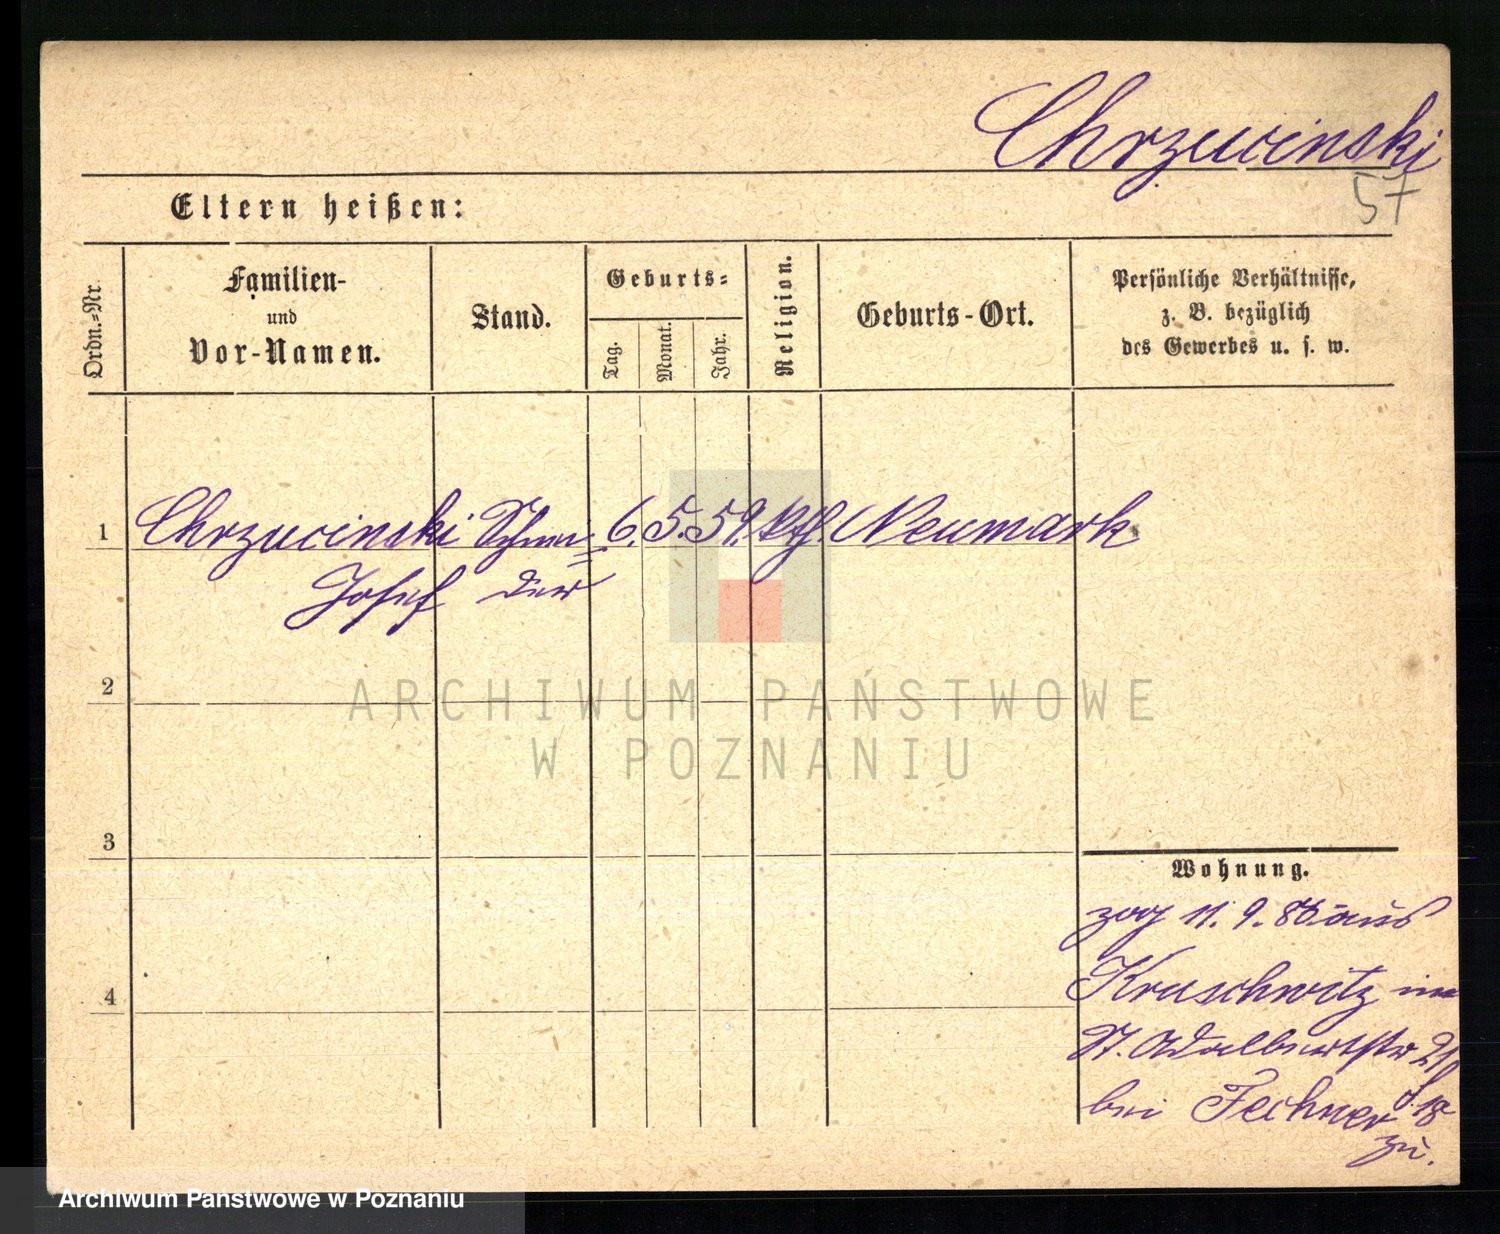 Chrzucinski
57
Eltern heißen:
Ordn.=Nr.
Familien-
und
Vor-Namen.
Stand.
Geburts=
Tag.
Monat.
Jahr.
Religion.
Geburts-Ort.
Persönliche Verhältnisse,
z. B. bezüglich
des Gewerbes u. s. w.
1 Chrzucinski Schnei= 6. 5. 59. kth. Neumark
Josef der
2
3
4
Wohnung.
zog 11. 9. 86 aus
Kruschwitz in
St. Adalbertstr 21
bei Fechner
zu.
ARCHIWUM PAŃSTWOWE
W POZNANIU
Archiwum Państwowe w Poznaniu